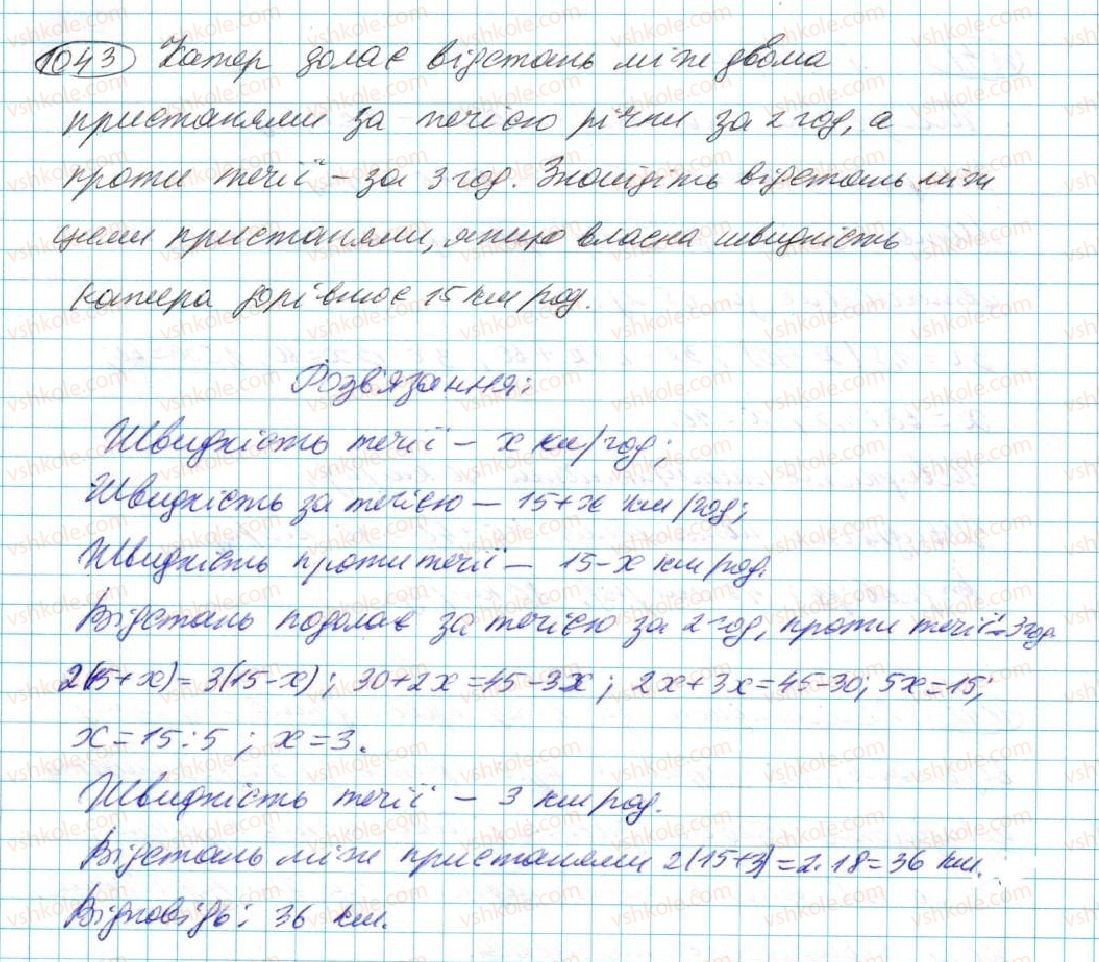 1043 Катер долає відстань між двома
пристанями за течією річки за 2 год, а
проти течії – за 3 год. Знайдіть відстань між
цими пристанями, якщо власна швидкість
катера дорівнює 15 км/год.
Розв'язання:
Швидкість течії – x км/год;
Швидкість за течією – 15+x км/год;
Швидкість проти течії – 15-x км/год.
Відстань подолав за течією за 2 год, проти течії – 3 год.
2(15+x)=3(15-x); 30+2x=45-3x; 2x+3x=45-30; 5x=15;
x=15:5; x=3.
Швидкість течії – 3 км/год.
Відстань між пристанями 2(15+3)=2·18=36 км.
Відповідь: 36 км.